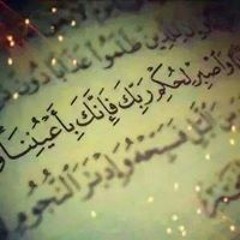 لِلَّذِينَ ظَلَمُوا عَذَابًا دُونَ
وَاصْبِرْ لِحُكْمِ رَبِّكَ فَإِنَّكَ بِأَعْيُنِنَا
اللَّيْلِ فَسَبِّحْهُ وَإِدْبَارَ النُّجُومِ